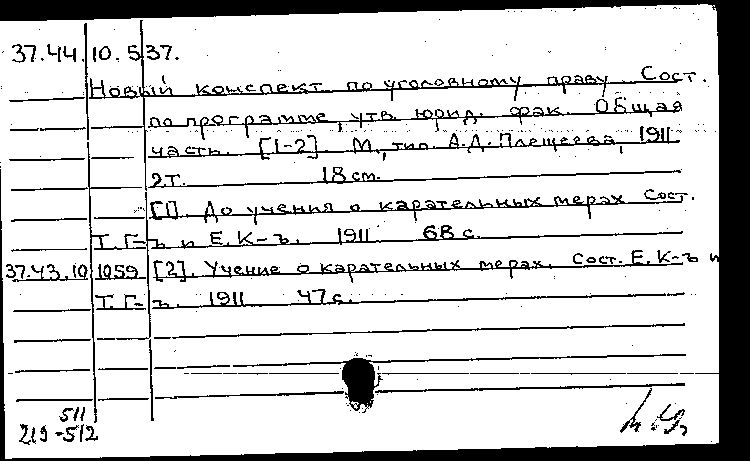 37.44.10.537.
Новый конспект по уголовному праву. Сост.
по программе, утв. юрид. фак. Общая
часть. [1-2]. М., тип. А.Д. Плещеева, 1911
2т. 18 см.
[1]. До учения о карательных мерах Сост.
Т. Г-ъ и Е. К-ъ. 1911 68 с.
37.43.10 1059 [2]. Учение о карательных мерах. Сост. Е. К-ъ и
Т. Г-ъ. 1911 47 с.
511
219-512